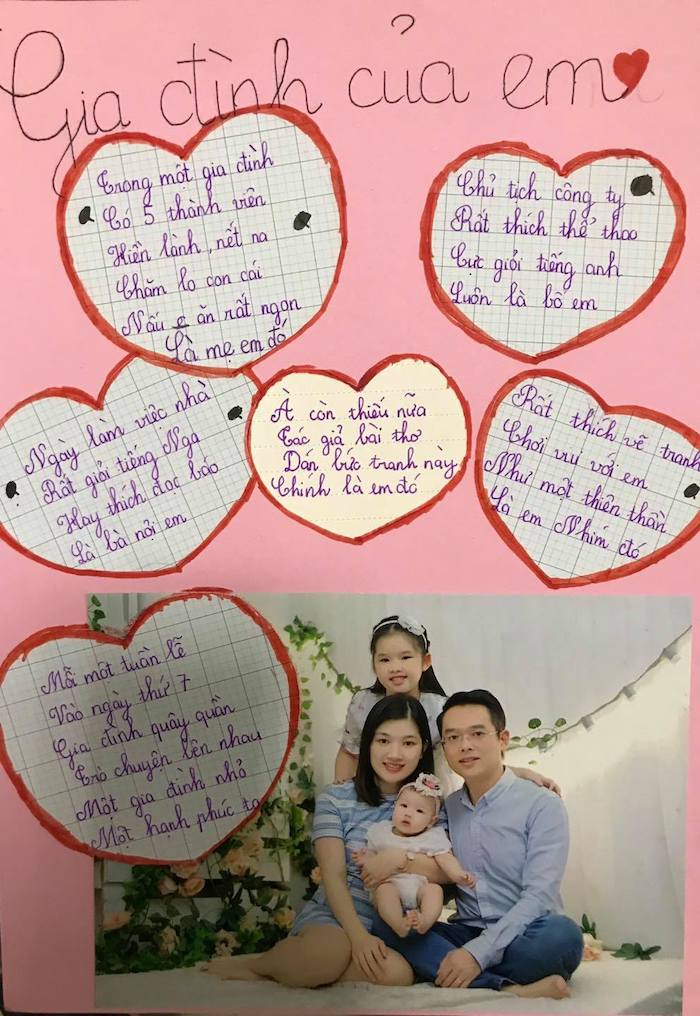 Gia đình của em
Trong một gia đình
Có 5 thành viên
Hiền lành, nết na
Chăm lo con cái
Nấu ăn rất ngon
Là mẹ em đó
Chủ tịch công ty
Rất thích thể thao
Cực giỏi tiếng anh
Luôn là bố em
Ngày làm việc nhà
Rất giỏi tiếng Nga
Hay thích đọc báo
Là bà nội em
À còn thiếu nữa
Tác giả bài thơ
Dán bức tranh này
Chính là em đó
Rất thích vẽ tranh
Chơi vui với em
Như một thiên thần
Là em Nhím đó
Mỗi một tuần lễ
Vào ngày thứ 7
Gia đình quây quần
Trò chuyện lên nhau
Một gia đình nhỏ
Một hạnh phúc to